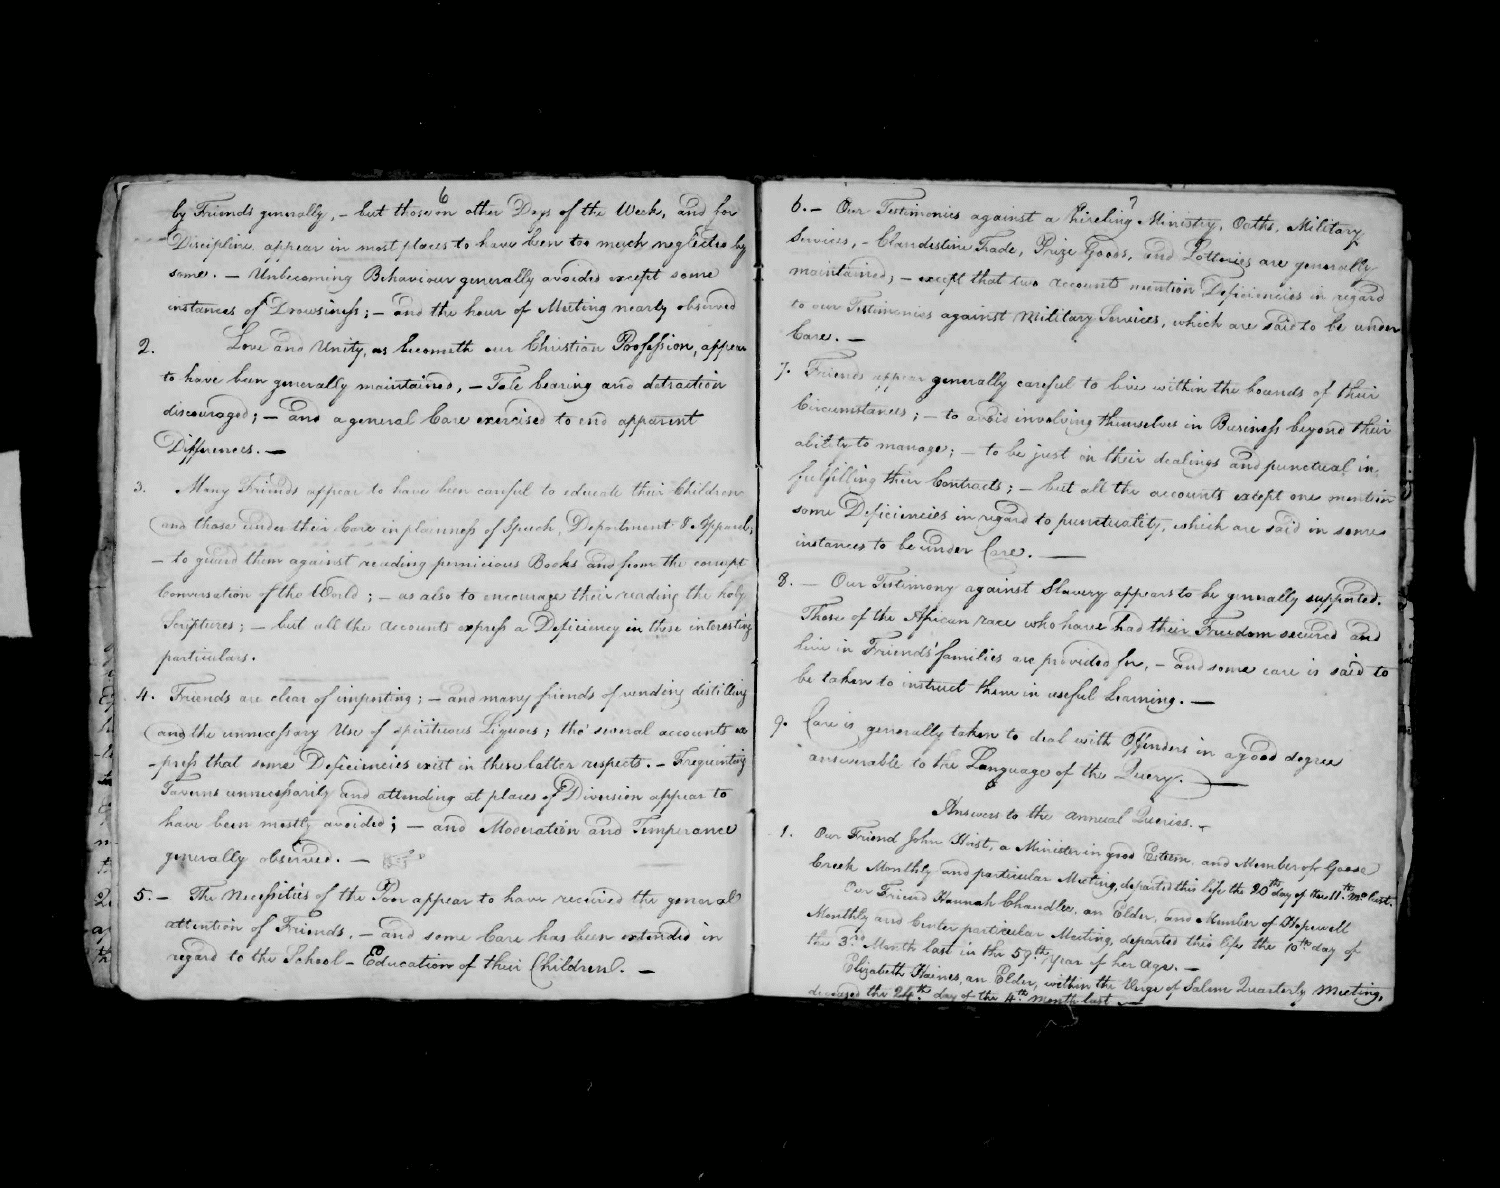 6
by Friends generally, - but those on other Days of the Week, and for
Discipline, appear in most places to have been too much neglected by
some. - Unbecoming Behaviour generally avoided except some
instances of Drowsiness; - and the hour of Meeting nearly observed
2. Love and Unity, as becometh our Christian Profession, appear
to have been generally maintained, - Tale bearing and detraction
discouraged; - and a general Care exercised to end apparent
Differences. -
3. Many Friends appear to have been careful to educate their Children
and those under their Care in plainness of Speech, Deportment & Apparel,
- to guard them against reading pernicious Books and from the corrupt
Conversation of the World; - as also to encourage their reading the holy
Scriptures; - but all the accounts express a Deficiency in these interesting
particulars.
4. Friends are clear of importing; - and many friends of vending distilling
and the unnecessary Use of spirituous Liquors; tho' several accounts ex
-press that some Deficiencies exist in these latter respects. - Frequenting
Taverns unnecessarily and attending at places of Diversion appear to
have been mostly avoided; - and Moderation and Temperance
generally observed. -
5. - The Necessities of the Poor appear to have received the general
attention of Friends, - and some Care has been extended in
regard to the School - Education of their Children. -
7
6. - Our Testimonies against a hireling Ministry, Oaths, Military
Services, - Clandestine Trade, Prize Goods, and Lotteries are generally
maintained; - except that two accounts mention Deficiencies in regard
to our Testimonies against Military Services, which are said to be under
Care. -
7. Friends appear generally careful to live within the bounds of their
Circumstances; - to avoid involving themselves in Business beyond their
ability to manage; - to be just in their dealings and punctual in
fulfilling their Contracts; - but all the accounts except one mention
some Deficiencies in regard to punctuality, which are said in some
instances to be under Care. -
8. - Our Testimony against Slavery appears to be generally supported.
Those of the African race who have had their Freedom secured and
live in Friends' families are provided for, - and some care is said to
be taken to instruct them in useful Learning. -
9. Care is generally taken to deal with Offenders in a good degree
answerable to the Language of the Query. -
Answers to the annual Queries. -
1. Our Friend John Hirst, a Minister in good Esteem, and Member of Goose
Creek Monthly and particular Meeting, departed this life the 20th day of the 11th mo last.
Our Friend Hannah Chandlee, an Elder, and Member of Hopewell
Monthly and Center particular Meeting, departed this life the 10th day of
the 3rd Month last in the 59th Year of her age. -
Elizabeth Haines, an Elder, within the Verge of Salem Quarterly Meeting,
deceased the 24th day of the 4th month last. -